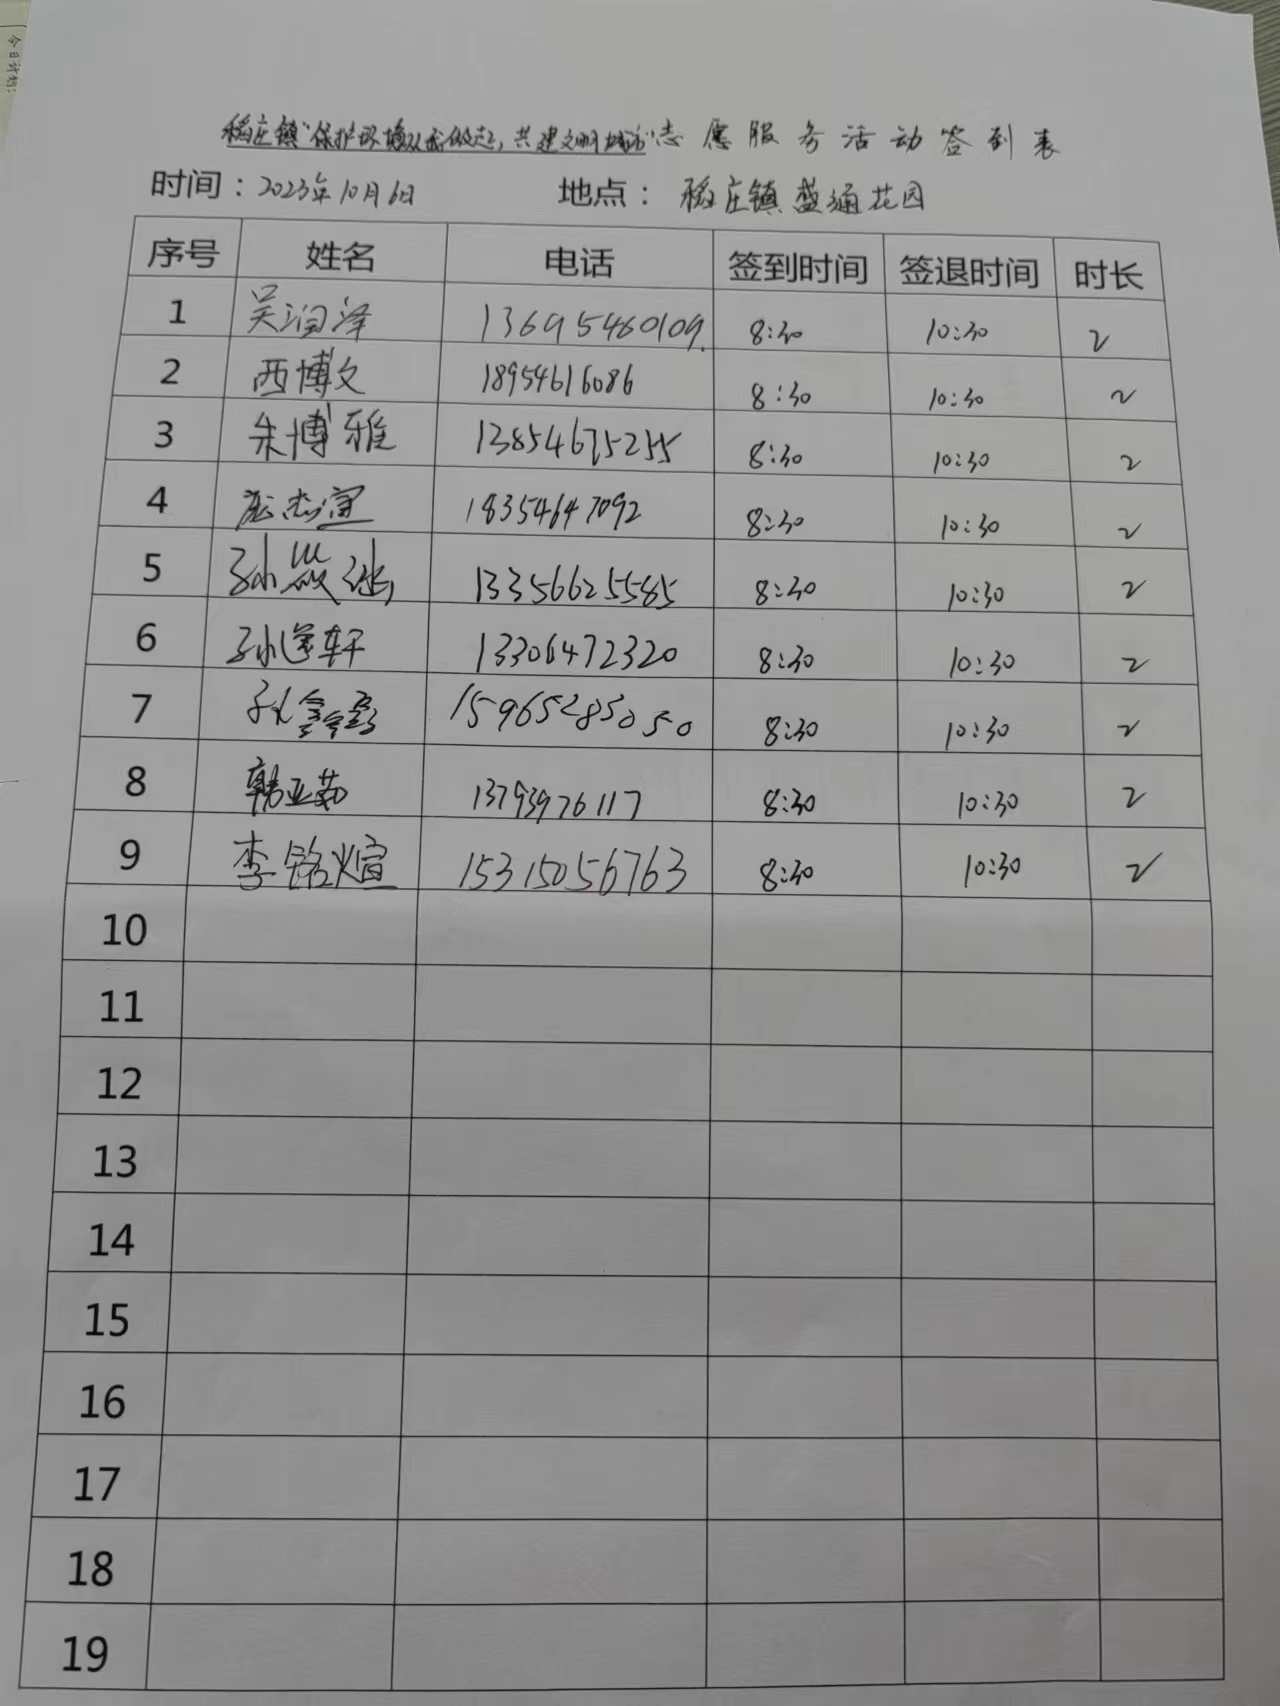 今日计划:
稻庄镇"保护环境从我做起,共建文明城市"志愿服务活动签到表
时间:2023年10月6日 地点:稻庄镇盛通花园
序号 姓名 电话 签到时间 签退时间 时长
1 吴润泽 13695460109. 8:30 10:30 2
2 西博文 18954616086 8:30 10:30 2
3 朱博雅 13854675255 8:30 10:30 2
4 18354647092 8:30 10:30 2
5 13356625585 8:30 10:30 2
6 13306472320 8:30 10:30 2
7 15965285050 8:30 10:30 2
8 韩亚茹 13793976117 8:30 10:30 2
9 李铭煊 15315056763 8:30 10:30 2
10
11
12
13
14
15
16
17
18
19